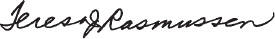 Teresa J Rasmussen